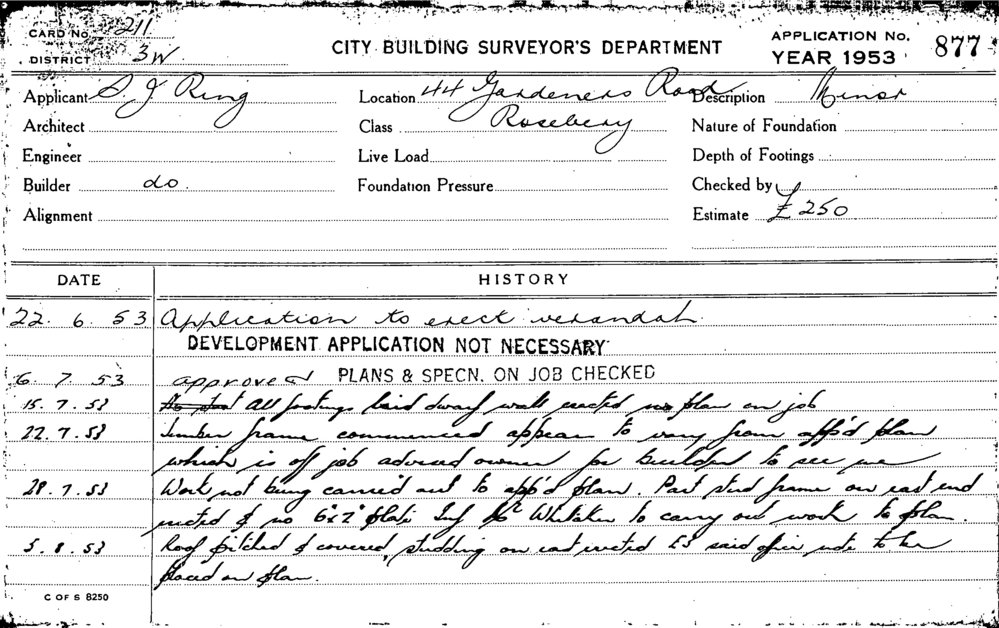 CARD No. 211
DISTRICT 3W
CITY BUILDING SURVEYOR'S DEPARTMENT
APPLICATION No. 877
YEAR 1953
Applicant S J Ring
Location 44 Gardeners Road
Description Minor
Architect
Class Rosebery
Nature of Foundation
Engineer
Live Load
Depth of Footings
Builder do.
Foundation Pressure
Checked by
Alignment
Estimate £250
DATE HISTORY
22. 6. 53 Application to erect verandah.
DEVELOPMENT APPLICATION NOT NECESSARY
6. 7. 53 approved PLANS & SPECN. ON JOB CHECKED
15. 7. 53 All footings laid dwarf wall erected no plan on job
22. 7. 53 Timber frame commenced appears to vary from app'd plan
which is off job advised owner for builder to see me
28. 7. 53 Work not being carried out to app'd plan. Part stud frame on east end
erected & no 6"x2" plate Inf Mr Whitaker to carry out work to plan.
5. 8. 53 Roof pitched & covered, studding on east erected said note to be
placed on plan.
C OF S 8250